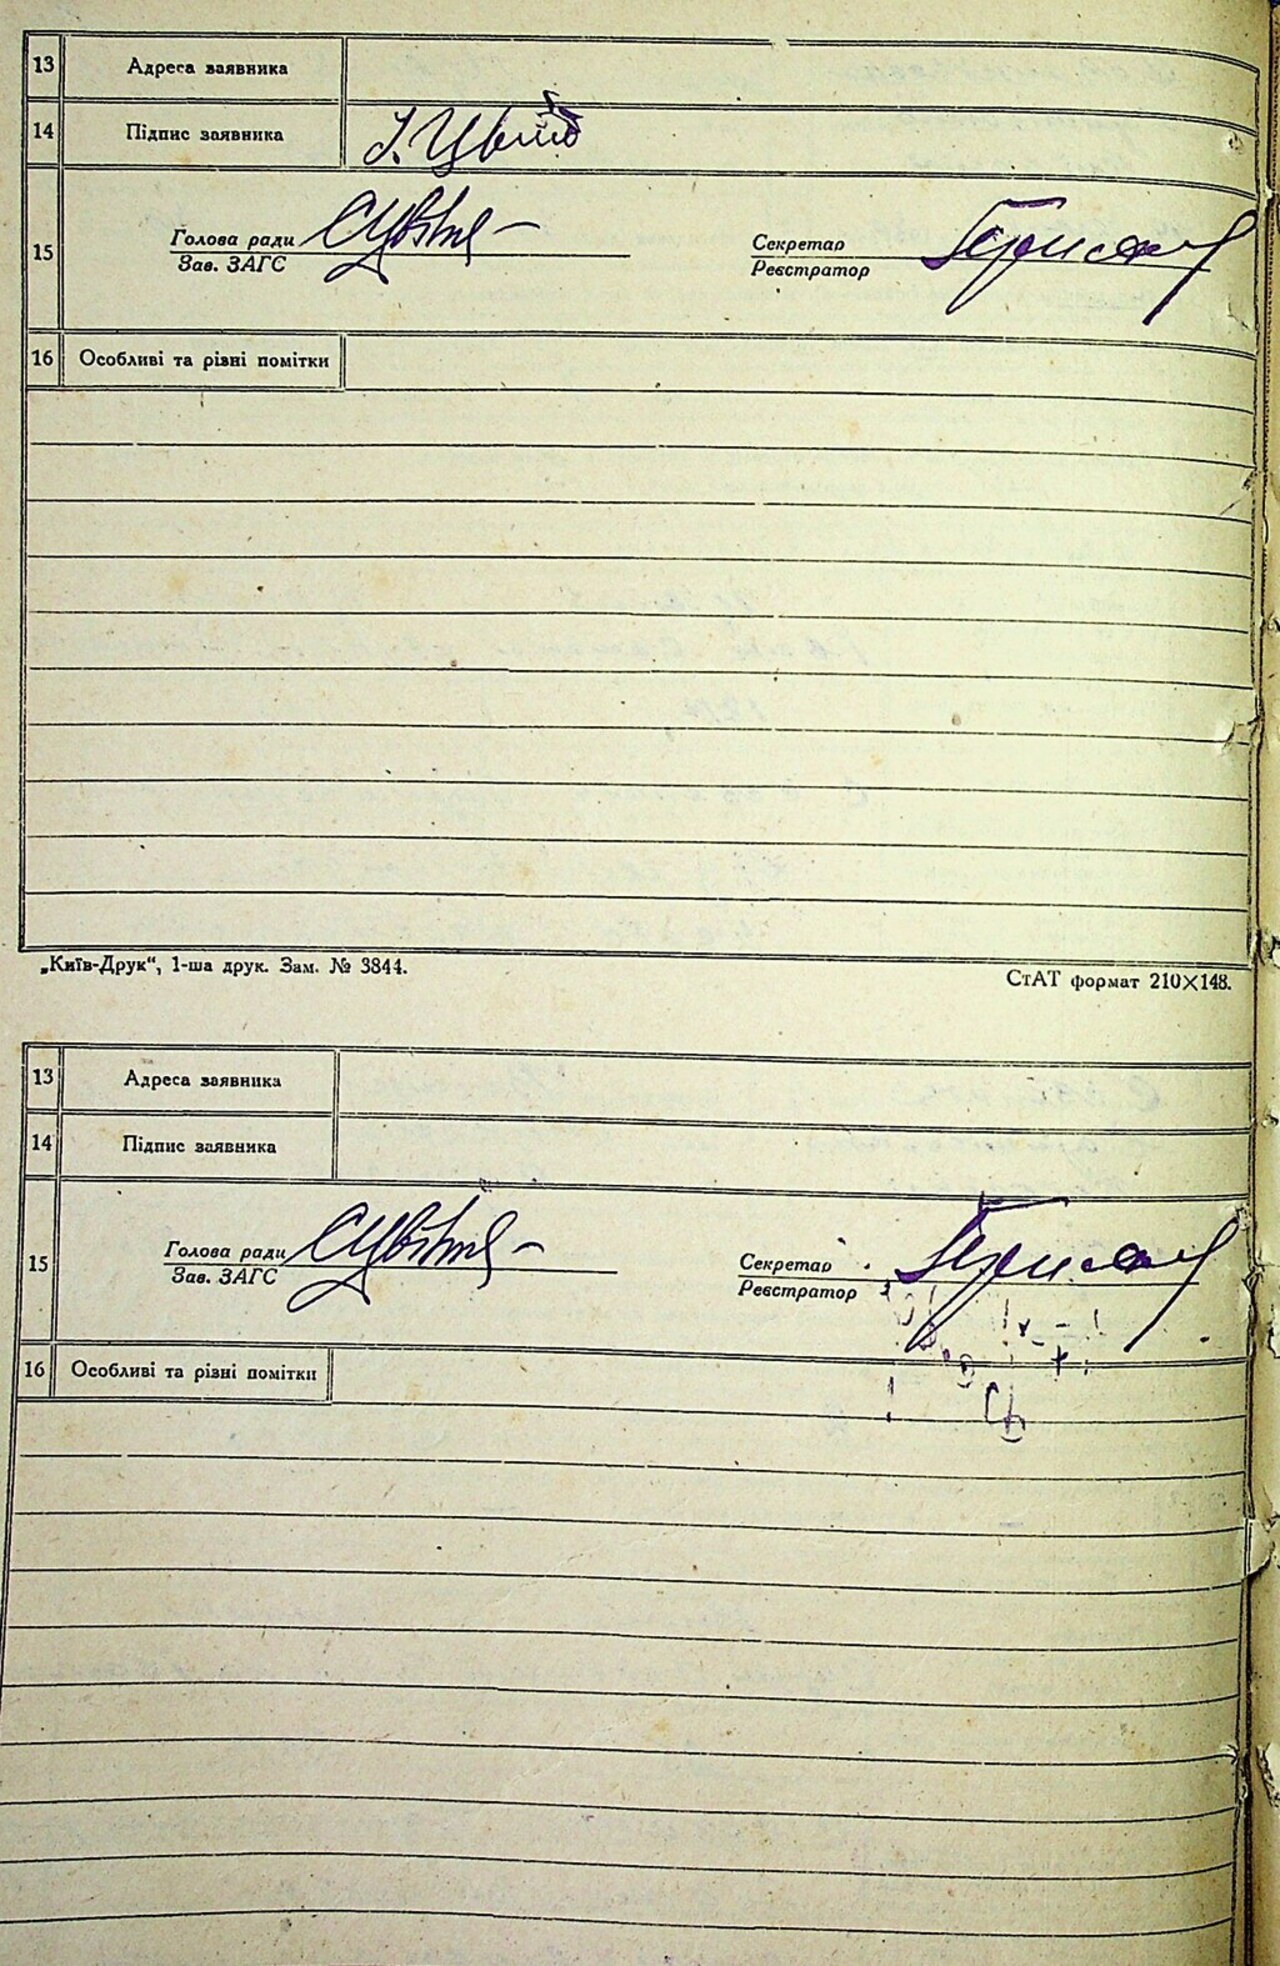 13 Адреса заявника
14 Підпис заявника
15 Голова ради Секретар
Зав. ЗАГС Реєстратор
16 Особливі та різні помітки
„Київ-Друк“, 1-ша друк. Зам. № 3844. СтАТ формат 210×148.
13 Адреса заявника
14 Підпис заявника
15 Голова ради Секретар
Зав. ЗАГС Реєстратор
16 Особливі та різні помітки